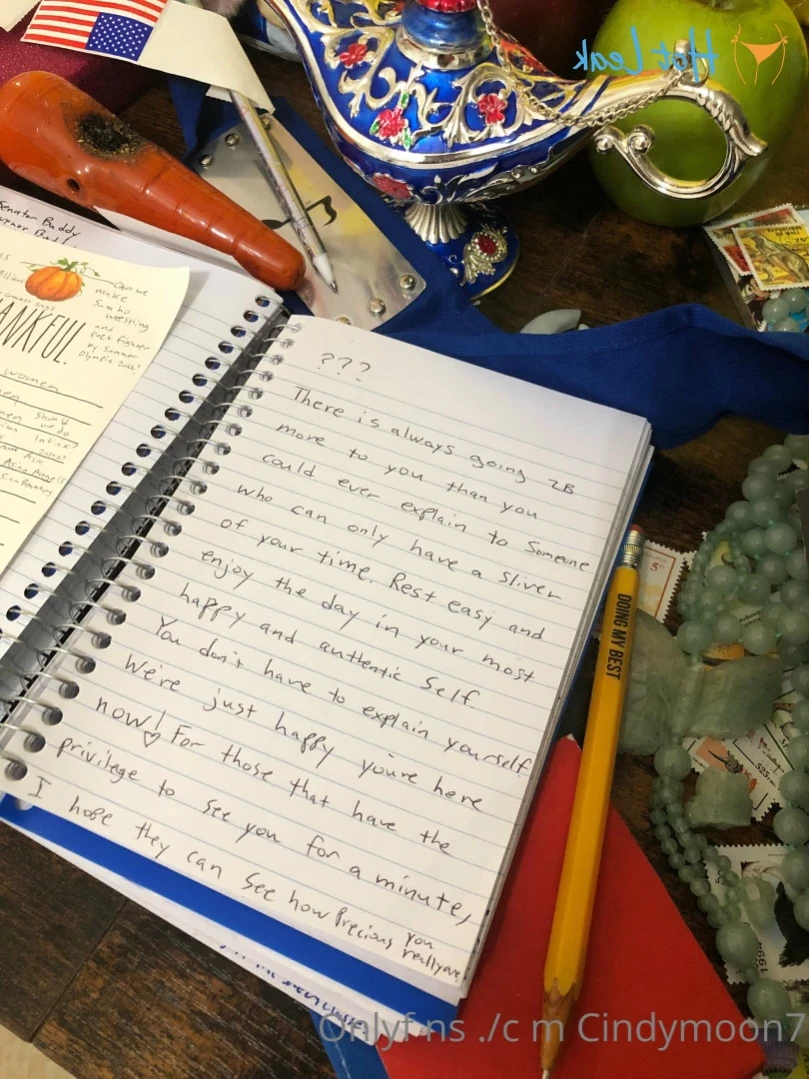 Hot Leak
Senator Buddy
Can we
make
Sumo
wrestling
and
by Summer
ANKFUL.
women
Should
we do
???
There is always going 2B
more to you than you
could ever explain to Someone
who can only have a sliver
of your time. Rest easy and
enjoy the day in your most
happy and authentic Self
You don't have to explain yourself
We're just happy you're here
now! For those that have the
privilege to see you for a minute,
I hope they can see how Precious you
really are
DOING MY BEST
Onlyf ns ./c m Cindymoon7